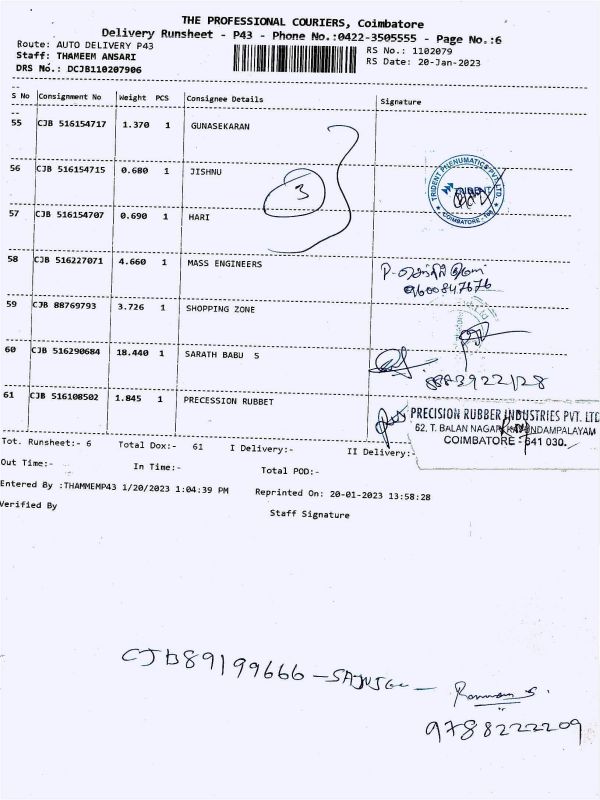 THE PROFESSIONAL COURIERS, Coimbatore
Delivery Runsheet - P43 - Phone No.:0422-3505555 - Page No.:6
Route: AUTO DELIVERY P43
RS No.: 1102079
Staff: THAMEEM ANSARI
RS Date: 20-Jan-2023
DRS No.: DCJB110207906
S No Consignment No Weight PCS Consignee Details Signature
55 CJB 516154717 1.370 1 GUNASEKARAN
56 CJB 516154715 0.680 1 JISHNU
3
TRIDENT PNEUMATICS PVT. LTD.
TRIDENT
COIMBATORE
57 CJB 516154707 0.690 1 HARI
58 CJB 516227071 4.660 1 MASS ENGINEERS
9600847676
59 CJB 88769793 3.726 1 SHOPPING ZONE
60 CJB 516290684 18.440 1 SARATH BABU S
61 CJB 516108502 1.845 1 PRECESSION RUBBET
PRECISION RUBBER INDUSTRIES PVT. LTD
62, T. BALAN NAGAR,
COIMBATORE - 641 030.
Tot. Runsheet:- 6 Total Dox:- 61 I Delivery:- II Delivery:-
Out Time:- In Time:- Total POD:-
Entered By :THAMMEMP43 1/20/2023 1:04:39 PM Reprinted On: 20-01-2023 13:58:28
Verified By Staff Signature
CJB89199666 -
9788222209